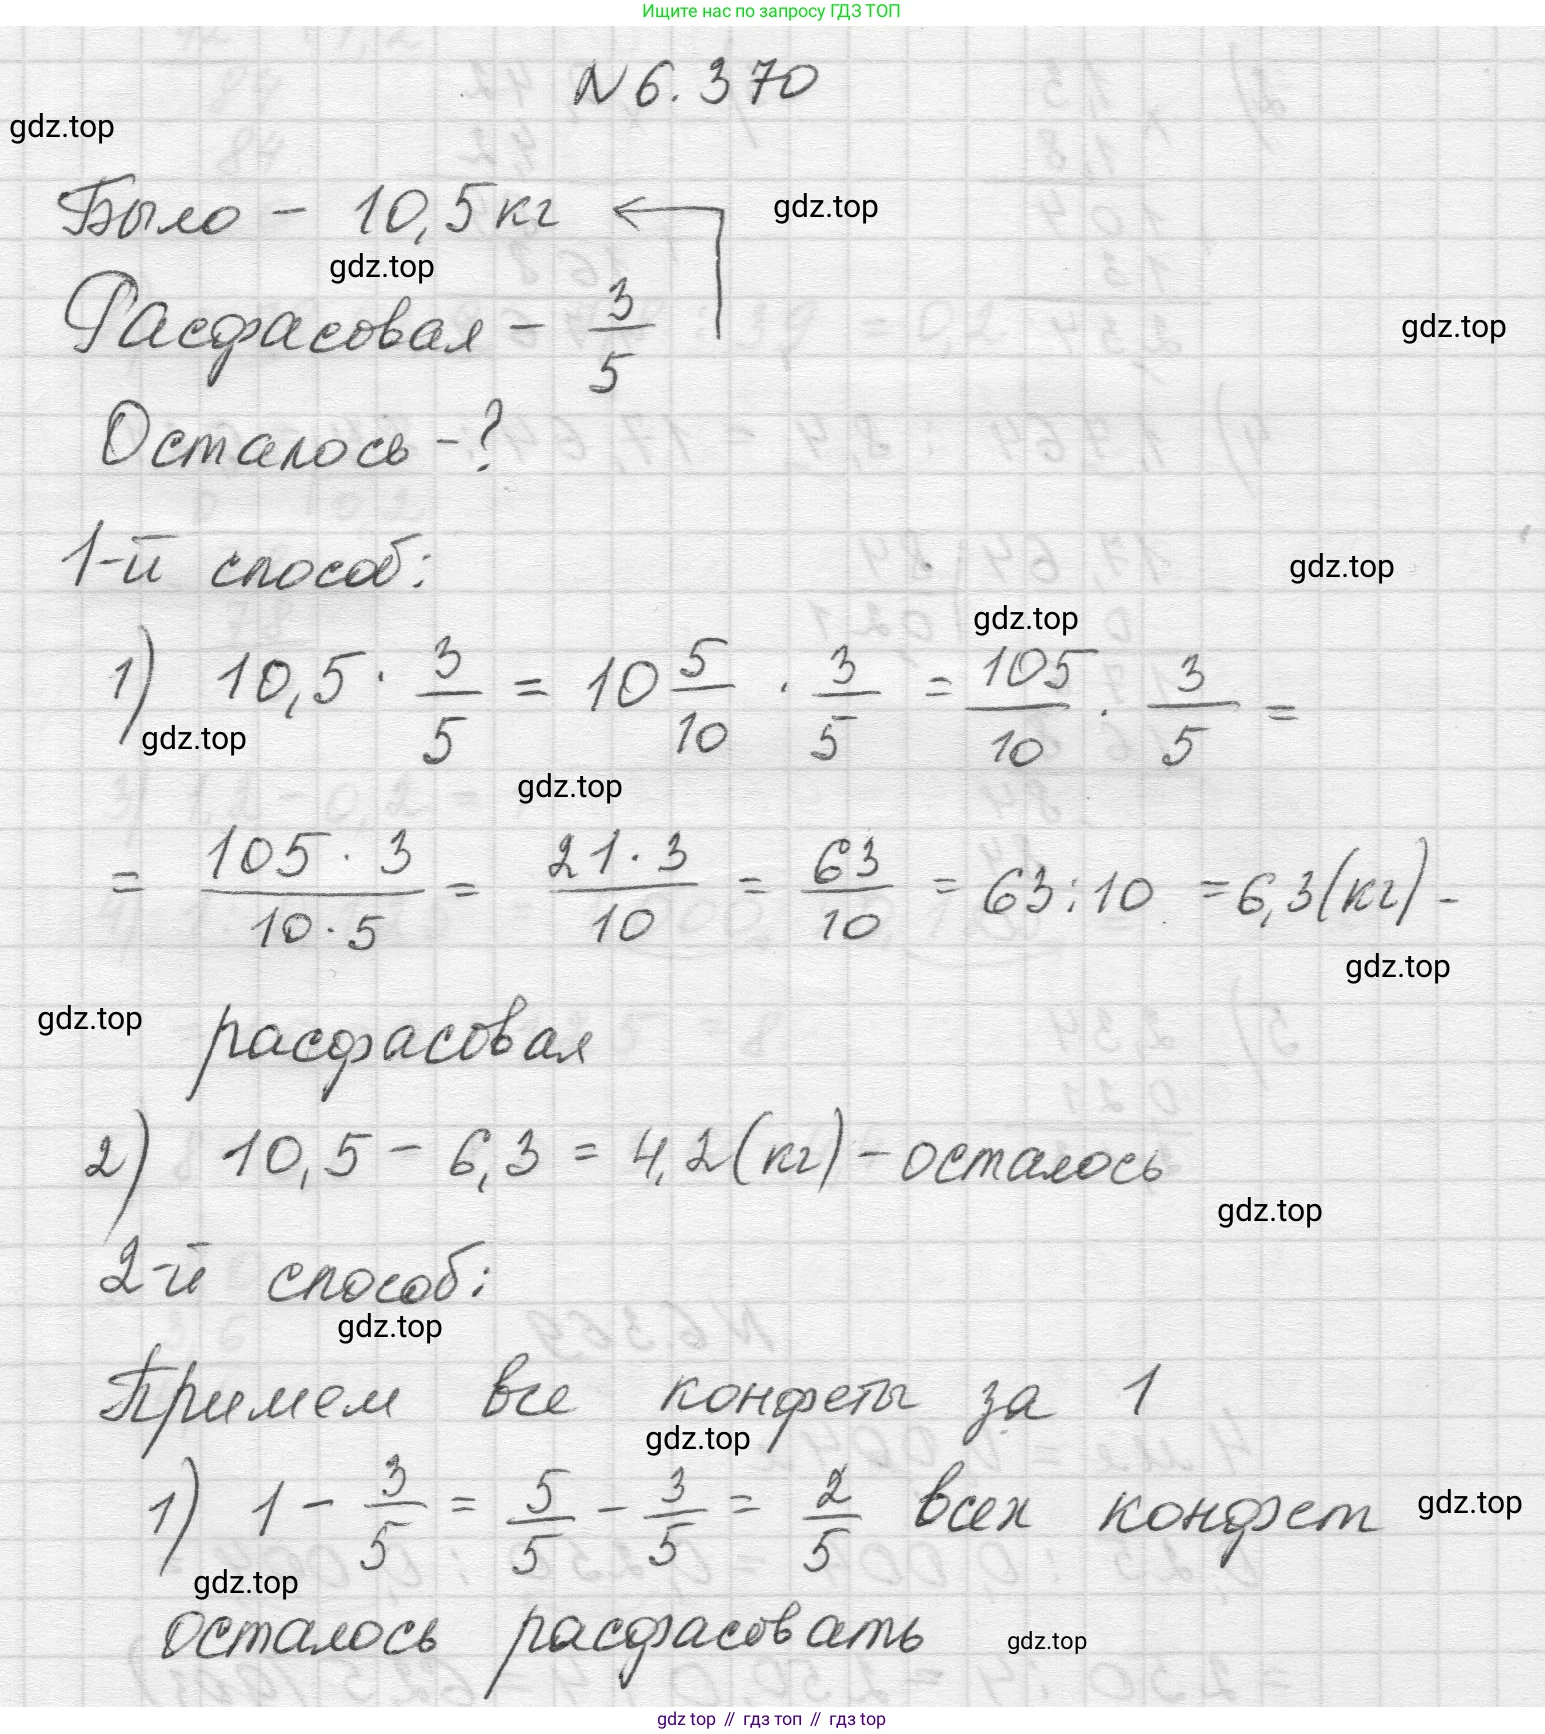 Ищите нас по запросу ГДЗ ТОП
№ 6.370
gdz.top
Было - 10,5 кг
gdz.top
gdz.top
Расфасовал - 3/5
gdz.top
Осталось - ?
1-й способ:
gdz.top
gdz.top
1) 10,5 · 3/5 = 10 5/10 · 3/5 = 105/10 · 3/5 =
gdz.top
gdz.top
= (105 · 3)/(10 · 5) = (21 · 3)/10 = 63/10 = 63 : 10 = 6,3 (кг) -
gdz.top
gdz.top
расфасовал
2) 10,5 - 6,3 = 4,2 (кг) - осталось
gdz.top
2-й способ:
gdz.top
Примем все конфеты за 1
gdz.top
1) 1 - 3/5 = 5/5 - 3/5 = 2/5 всех конфет
gdz.top
gdz.top
осталось расфасовать
gdz.top
gdz top // гдз топ // гдз top